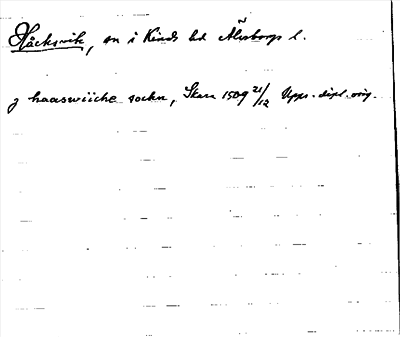 Håcksvik, sn i Kinds hd Älvsborgs l.
j haaswiiche sockn, Skara 1509 21/12 Upps. dipl. orig.